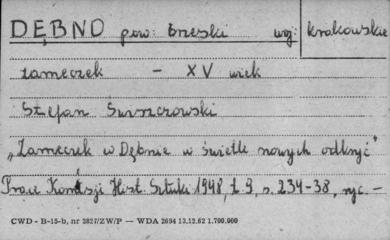 DĘBNO pow: brzeski woj: krakowskie
zameczek - XV wiek
Stefan Świszczowski
„Zameczek w Dębnie w świetle nowych odkryć"
Prace Komisji Hist. Sztuki 1948, t. 9, s. 234-38, ryc. -
CWD - B-15-b, nr 2827/ZW/P — WDA 2694 13.12.62 1.700.000